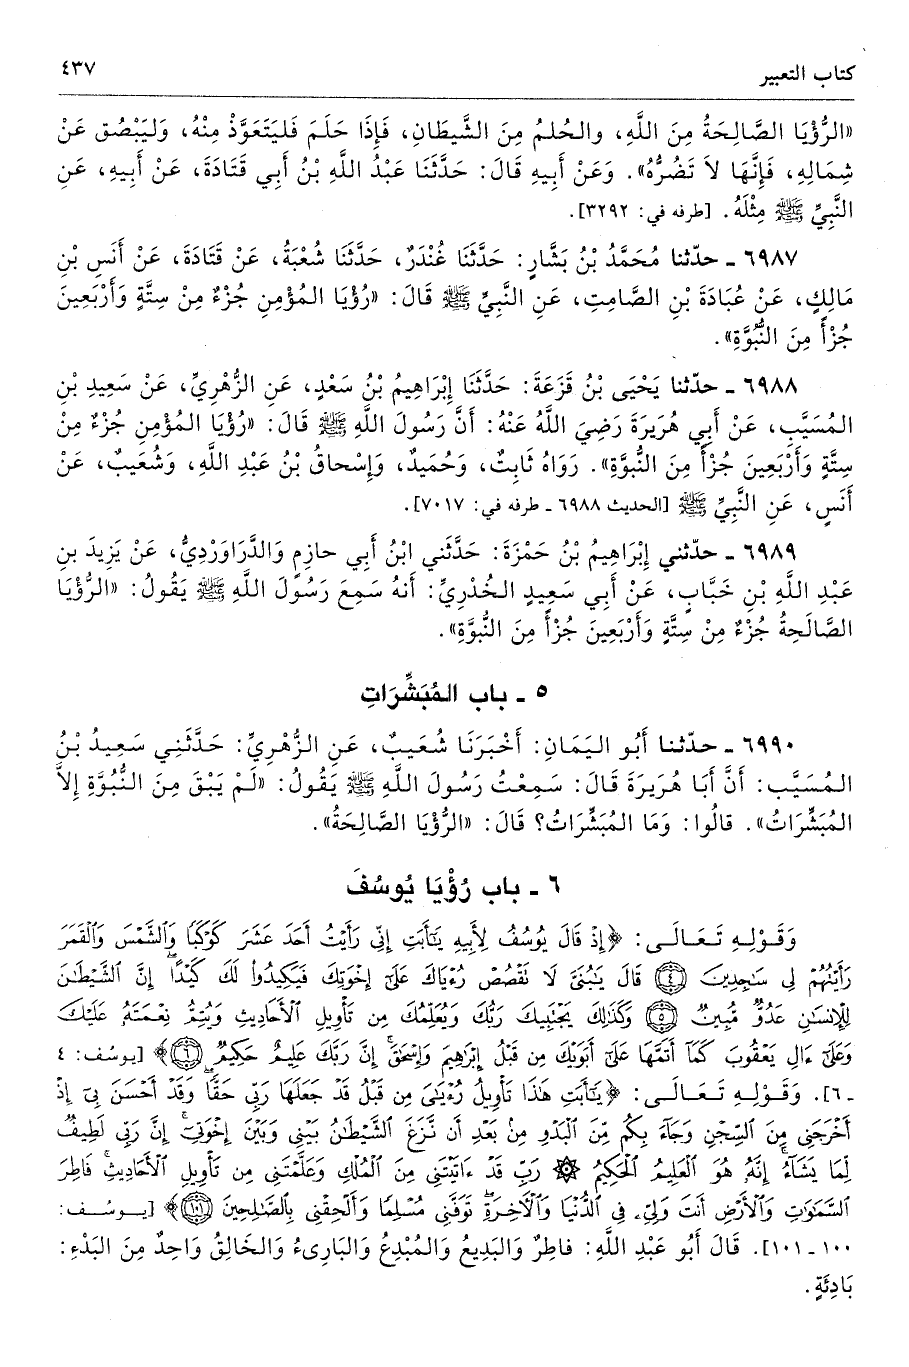 كتاب التعبير ٤٣٧
«الرُّؤْيَا الصَّالِحَةُ مِنَ اللَّهِ، والحُلمُ مِنَ الشَّيطَانِ، فَإِذَا حَلَمَ فَليَتَعَوَّذْ مِنْهُ، وَليَبْصُق عَنْ
شِمَالِهِ، فَإِنَّهَا لاَ تَضُرُّهُ». وَعَنْ أَبِيهِ قَالَ: حَدَّثَنَا عَبْدُ اللَّهِ بْنُ أَبي قَتَادَةَ، عَنْ أَبيهِ، عَنِ
النَّبِيِّ ﷺ مِثْلَهُ. [طرفه في: ٣٢٩٢].
٦٩٨٧ ـ حدّثنا مُحَمَّدُ بْنُ بَشَّارٍ: حَدَّثَنَا غُنْدَرٌ، حَدَّثَنَا شُعْبَةُ، عَنْ قَتَادَةَ، عَنْ أَنَسِ بْنِ
مَالِكٍ، عَنْ عُبَادَةَ بْنِ الصَّامِتِ، عَنِ النَّبِيِّ ﷺ قَالَ: «رُؤْيَا المُؤْمِنِ جُزْءٌ مِنْ سِتَّةٍ وَأَرْبَعِينَ
جُزْأً مِنَ النُّبُوَّةِ».
٦٩٨٨ ـ حدّثنا يَحْيَى بْنُ قَزَعَةَ: حَدَّثَنَا إِبْرَاهِيمُ بْنُ سَعْدٍ، عَنِ الزُّهْرِيِّ، عَنْ سَعِيدِ بْنِ
المُسَيَّبِ، عَنْ أَبِي هُرَيرَةَ رَضِيَ اللَّهُ عَنْهُ: أَنَّ رَسُولَ اللَّهِ ﷺ قَالَ: «رُؤْيَا المُؤْمِنِ جُزْءٌ مِنْ
سِتَّةٍ وَأَرْبَعِينَ جُزْأً مِنَ النُّبُوَّةِ». رَوَاهُ ثَابِتٌ، وَحُمَيدٌ، وَإِسْحاقُ بْنُ عَبْدِ اللَّهِ، وَشُعَيبٌ، عَنْ
أَنَسٍ، عَنِ النَّبِيِّ ﷺ [الحديث ٦٩٨٨ ـ طرفه في: ٧٠١٧].
٦٩٨٩ ـ حدّثني إِبْرَاهِيمُ بْنُ حَمْزَةَ: حَدَّثَني ابْنُ أَبي حازِمٍ وَالدَّرَاوَرْدِيُّ، عَنْ يَزِيدَ بنِ
عَبْدِ اللَّهِ بْنِ خَبَّابٍ، عَنْ أَبي سَعِيدٍ الخُدْرِيِّ: أَنَّهُ سَمِعَ رَسُولَ اللَّهِ ﷺ يَقُولُ: «الرُّؤْيَا
الصَّالَحِةُ جُزْءٌ مِنْ سِتَّةٍ وَأَرْبَعِينَ جُزْأً مِنَ النُّبوَّةِ».
٥ ـ باب المُبَشِّرَاتِ
٦٩٩٠ ـ حدّثنا أَبُو اليَمَانِ: أَخْبَرَنَا شُعَيبٌ، عَنِ الزُّهْرِيِّ: حَدَّثَنِي سَعِيدُ بْنُ
المُسَيَّبِ: أَنَّ أَبَا هُرَيرَةَ قَالَ: سَمِعْتُ رَسُولَ اللَّهِ ﷺ يَقُولُ: «لَمْ يَبْقَ مِنَ النُّبُوَّةِ إِلاَّ
المُبَشِّرَاتُ». قالُوا: وَمَا المُبَشِّرَاتُ؟ قَالَ: «الرُّؤْيَا الصَّالِحَةُ».
٦ ـ باب رُؤْيَا يُوسُفَ
وَقَوْلِهِ تَعَالَى: ﴿إِذْ قَالَ يُوسُفُ لِأَبِيهِ يَٰٓأَبَتِ إِنِّى رَأَيْتُ أَحَدَ عَشَرَ كَوْكَبًا وَٱلشَّمْسَ وَٱلْقَمَرَ
رَأَيْتُهُمْ لِى سَٰجِدِينَ ٤ قَالَ يَٰبُنَىَّ لَا تَقْصُصْ رُءْيَاكَ عَلَىٰٓ إِخْوَتِكَ فَيَكِيدُوا۟ لَكَ كَيْدًا ۖ إِنَّ ٱلشَّيْطَٰنَ
لِلْإِنسَٰنِ عَدُوٌّ مُّبِينٌ ٥ وَكَذَٰلِكَ يَجْتَبِيكَ رَبُّكَ وَيُعَلِّمُكَ مِن تَأْوِيلِ ٱلْأَحَادِيثِ وَيُتِمُّ نِعْمَتَهُۥ عَلَيْكَ
وَعَلَىٰٓ ءَالِ يَعْقُوبَ كَمَآ أَتَمَّهَا عَلَىٰٓ أَبَوَيْكَ مِن قَبْلُ إِبْرَٰهِيمَ وَإِسْحَٰقَ ۚ إِنَّ رَبَّكَ عَلِيمٌ حَكِيمٌ ٦﴾ [يوسُف: ٤
ـ ٦]. وَقَوْلِهِ تَعَالَى: ﴿يَٰٓأَبَتِ هَٰذَا تَأْوِيلُ رُءْيَٰىَ مِن قَبْلُ قَدْ جَعَلَهَا رَبِّى حَقًّا ۖ وَقَدْ أَحْسَنَ بِىٓ إِذْ
أَخْرَجَنِى مِنَ ٱلسِّجْنِ وَجَآءَ بِكُم مِّنَ ٱلْبَدْوِ مِنۢ بَعْدِ أَن نَّزَغَ ٱلشَّيْطَٰنُ بَيْنِى وَبَيْنَ إِخْوَتِىٓ ۚ إِنَّ رَبِّى لَطِيفٌ
لِّمَا يَشَآءُ ۚ إِنَّهُۥ هُوَ ٱلْعَلِيمُ ٱلْحَكِيمُ ۞ رَبِّ قَدْ ءَاتَيْتَنِى مِنَ ٱلْمُلْكِ وَعَلَّمْتَنِى مِن تَأْوِيلِ ٱلْأَحَادِيثِ ۚ فَاطِرَ
ٱلسَّمَٰوَٰتِ وَٱلْأَرْضِ أَنتَ وَلِىِّۦ فِى ٱلدُّنْيَا وَٱلْءَاخِرَةِ ۖ تَوَفَّنِى مُسْلِمًا وَأَلْحِقْنِى بِٱلصَّٰلِحِينَ ١٠١﴾ [يوسُف:
١٠٠ ـ ١٠١]. قَالَ أَبُو عَبْدِ اللَّهِ: فاطِرٌ وَالبَدِيعُ وَالمُبْدِعُ وَالبَارِىءُ وَالخَالِقُ وَاحِدٌ مِنَ البَدْءِ:
بَادِئَةٍ.